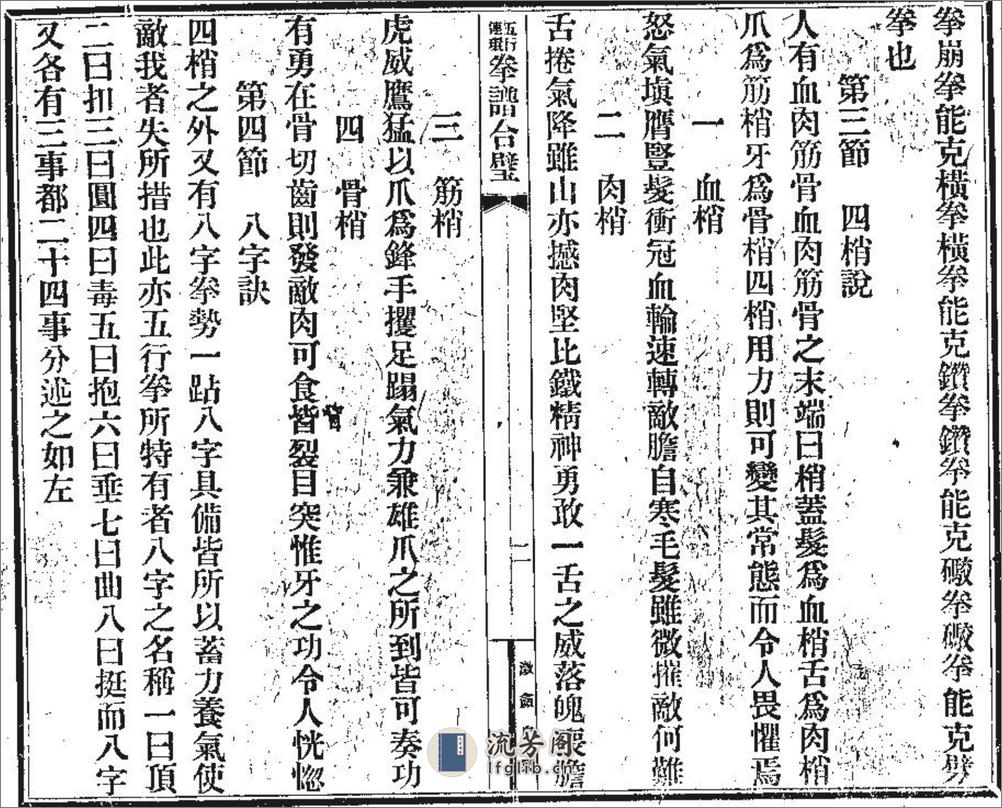 拳崩拳能克橫拳橫拳能克鑽拳鑽拳能克礮拳礮拳能克劈
拳也
第三節 四梢說
人有血肉筋骨血肉筋骨之末端曰梢蓋髮爲血梢舌爲肉梢
爪爲筋梢牙爲骨梢四梢用力則可變其常態而令人畏懼焉
一 血梢
怒氣填膺豎髮衝冠血輪速轉敵膽自寒毛髮雖微摧敵何難
二 肉梢
舌捲氣降雖山亦撼肉堅比鐵精神勇敢一舌之威落魄喪膽
五行連環拳譜合璧
二
三 筋梢
虎威鷹猛以爪爲鋒手攫足蹋氣力兼雄爪之所到皆可奏功
四 骨梢
有勇在骨切齒則發敵肉可食眥裂目突惟牙之功令人恍惚
第四節 八字訣
四梢之外又有八字拳勢一跕八字具備皆所以蓄力養氣使
敵我者失所措也此亦五行拳所特有者八字之名稱一曰頂
二曰扣三曰圓四曰毒五曰抱六曰垂七曰曲八曰挺而八字
又各有三事都二十四事分述之如左
流芳閣
lfglib.com